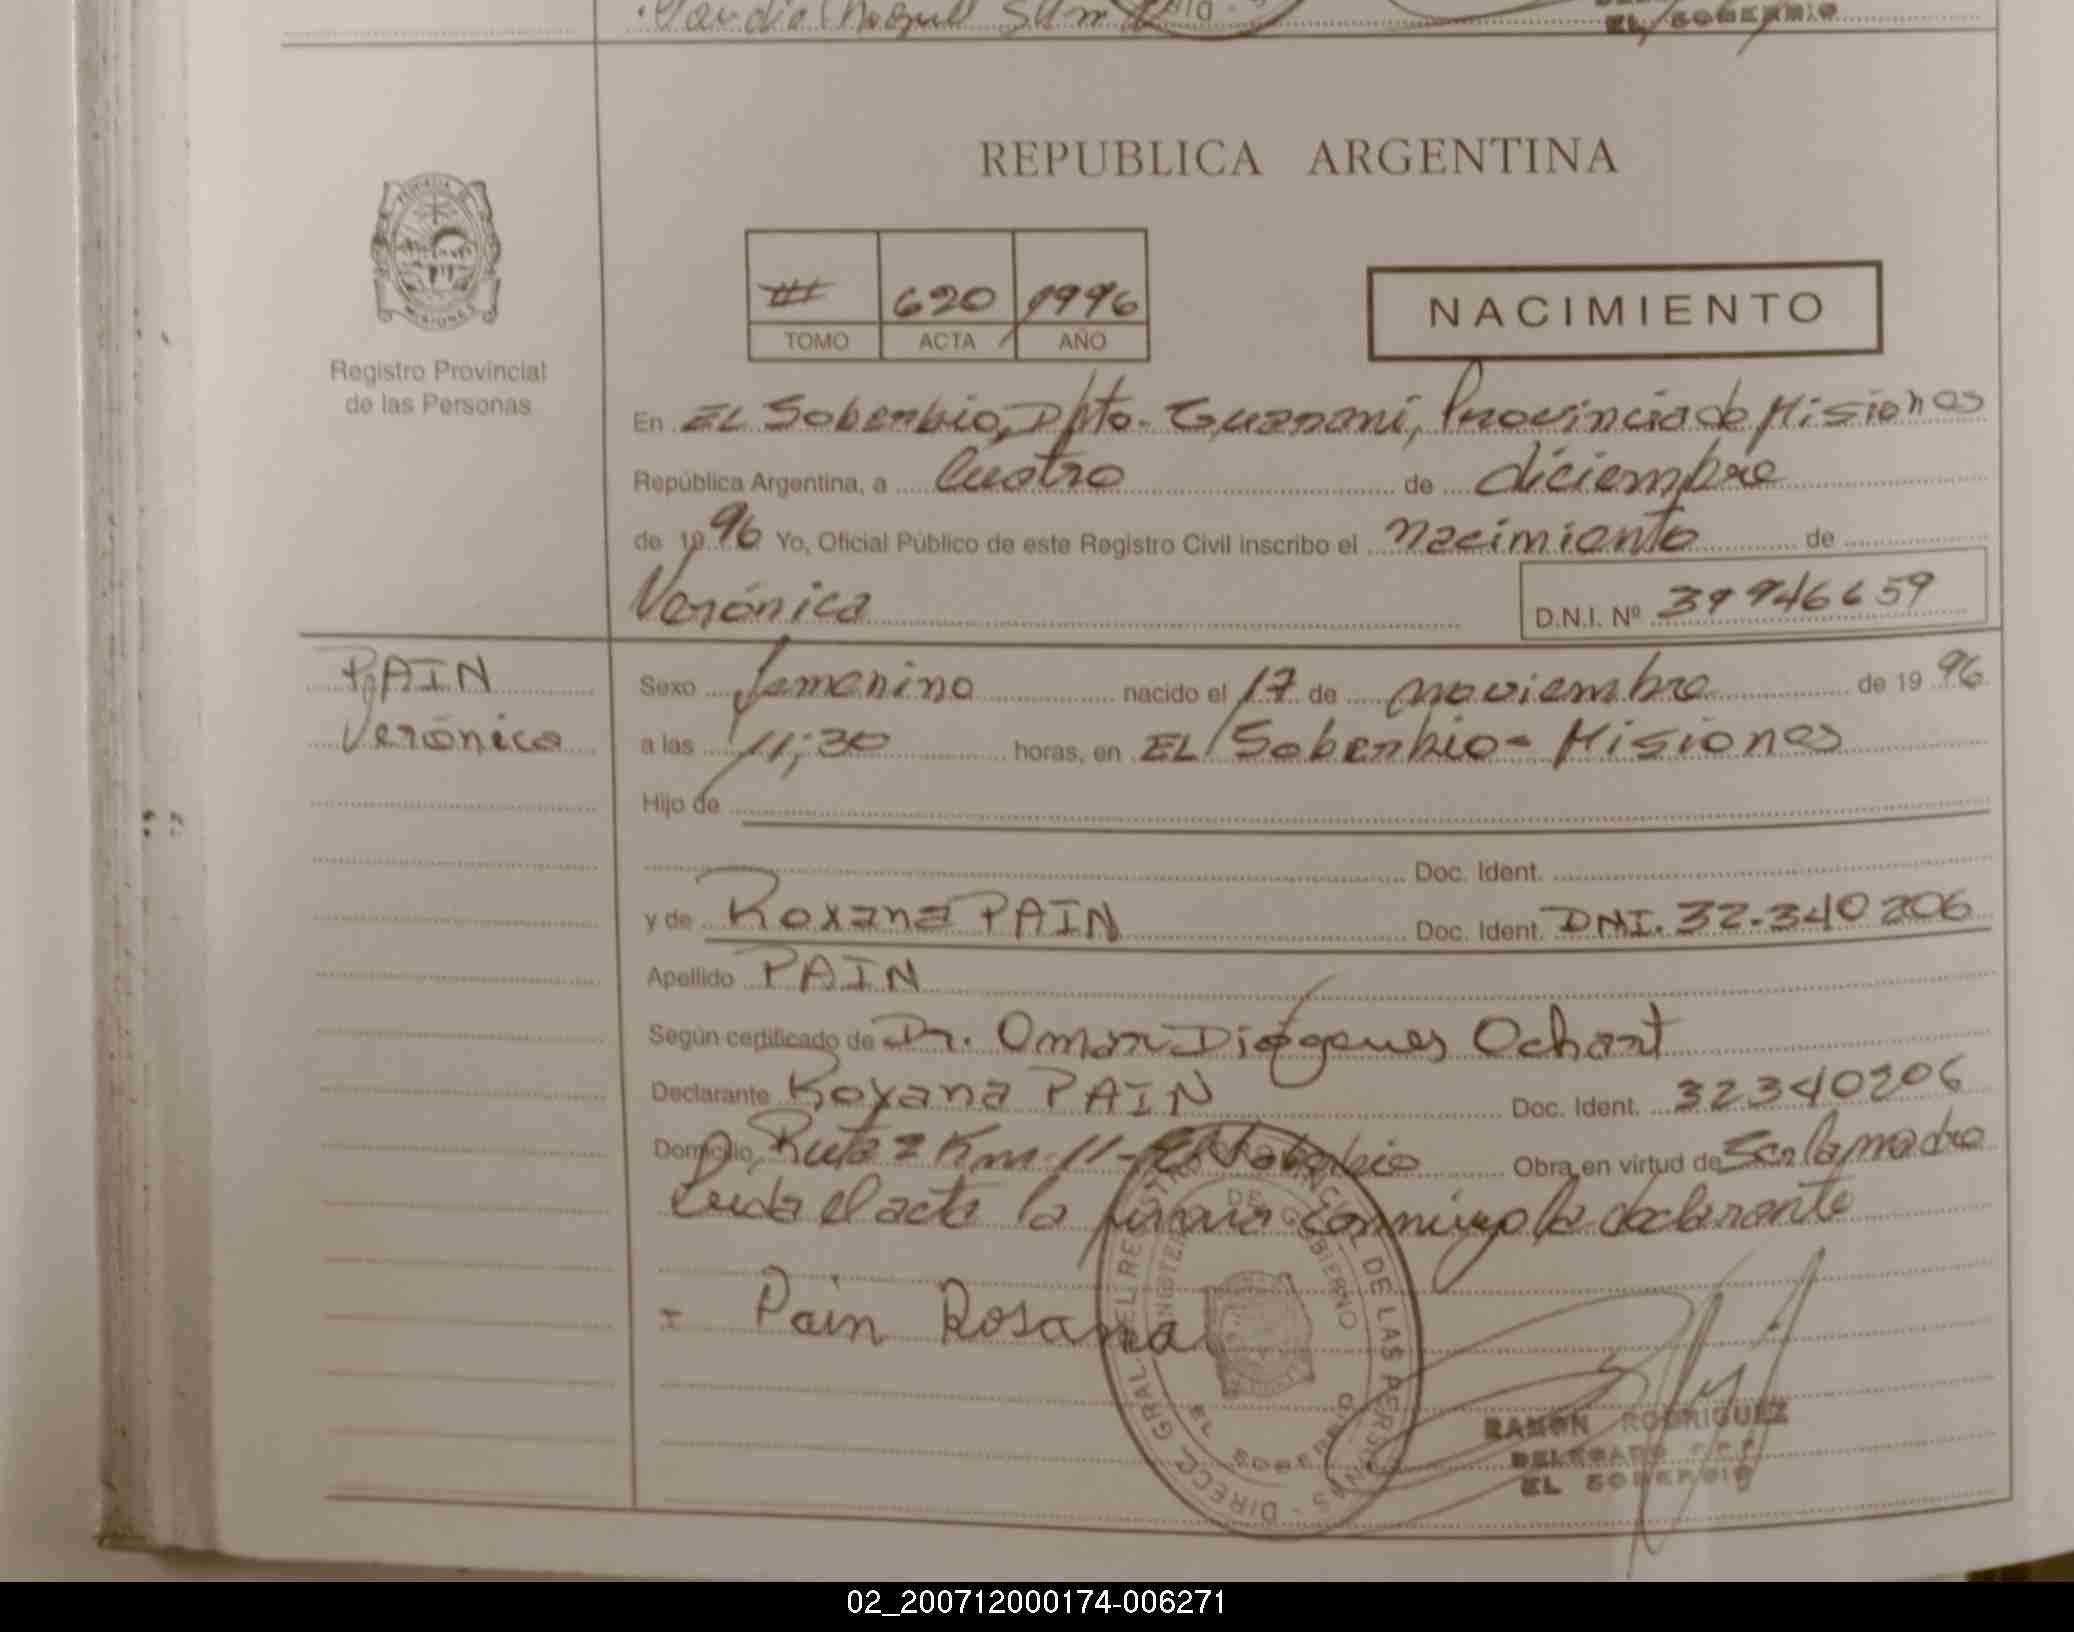 REPUBLICA ARGENTINA
III 620 1996
TOMO ACTA AÑO
NACIMIENTO
Registro Provincial
de las Personas
En EL Soberbio, Dpto. Guaraní, Provincia de Misiones
República Argentina, a Cuatro de diciembre
de 1996 Yo, Oficial Público de este Registro Civil inscribo el nacimiento de
Verónica D.N.I. Nº 39946659
PAIN
Verónica
Sexo femenino nacido el 17 de noviembre de 1996
a las 11;30 horas, en EL Soberbio - Misiones
Hijo de
Doc. Ident.
y de Roxana PAIN Doc. Ident. DNI. 32.340206
Apellido PAIN
Según certificado de Dr. Omar Diógenes Ochart
Declarante Roxana PAIN Doc. Ident. 32340206
Domicilio Ruta 2 Km 11 - El Soberbio Obra en virtud de Ser la madre
Leida el acta la firma conmigo la declarante
- Pain Rosana
DIRECC. GRAL. DEL REGISTRO PROVINCIAL DE LAS PERSONAS
MINISTERIO DE GOBIERNO
EL SOBERBIO
RAMON RODRIGUEZ
DELEGADO
EL SOBERBIO
02_200712000174-006271